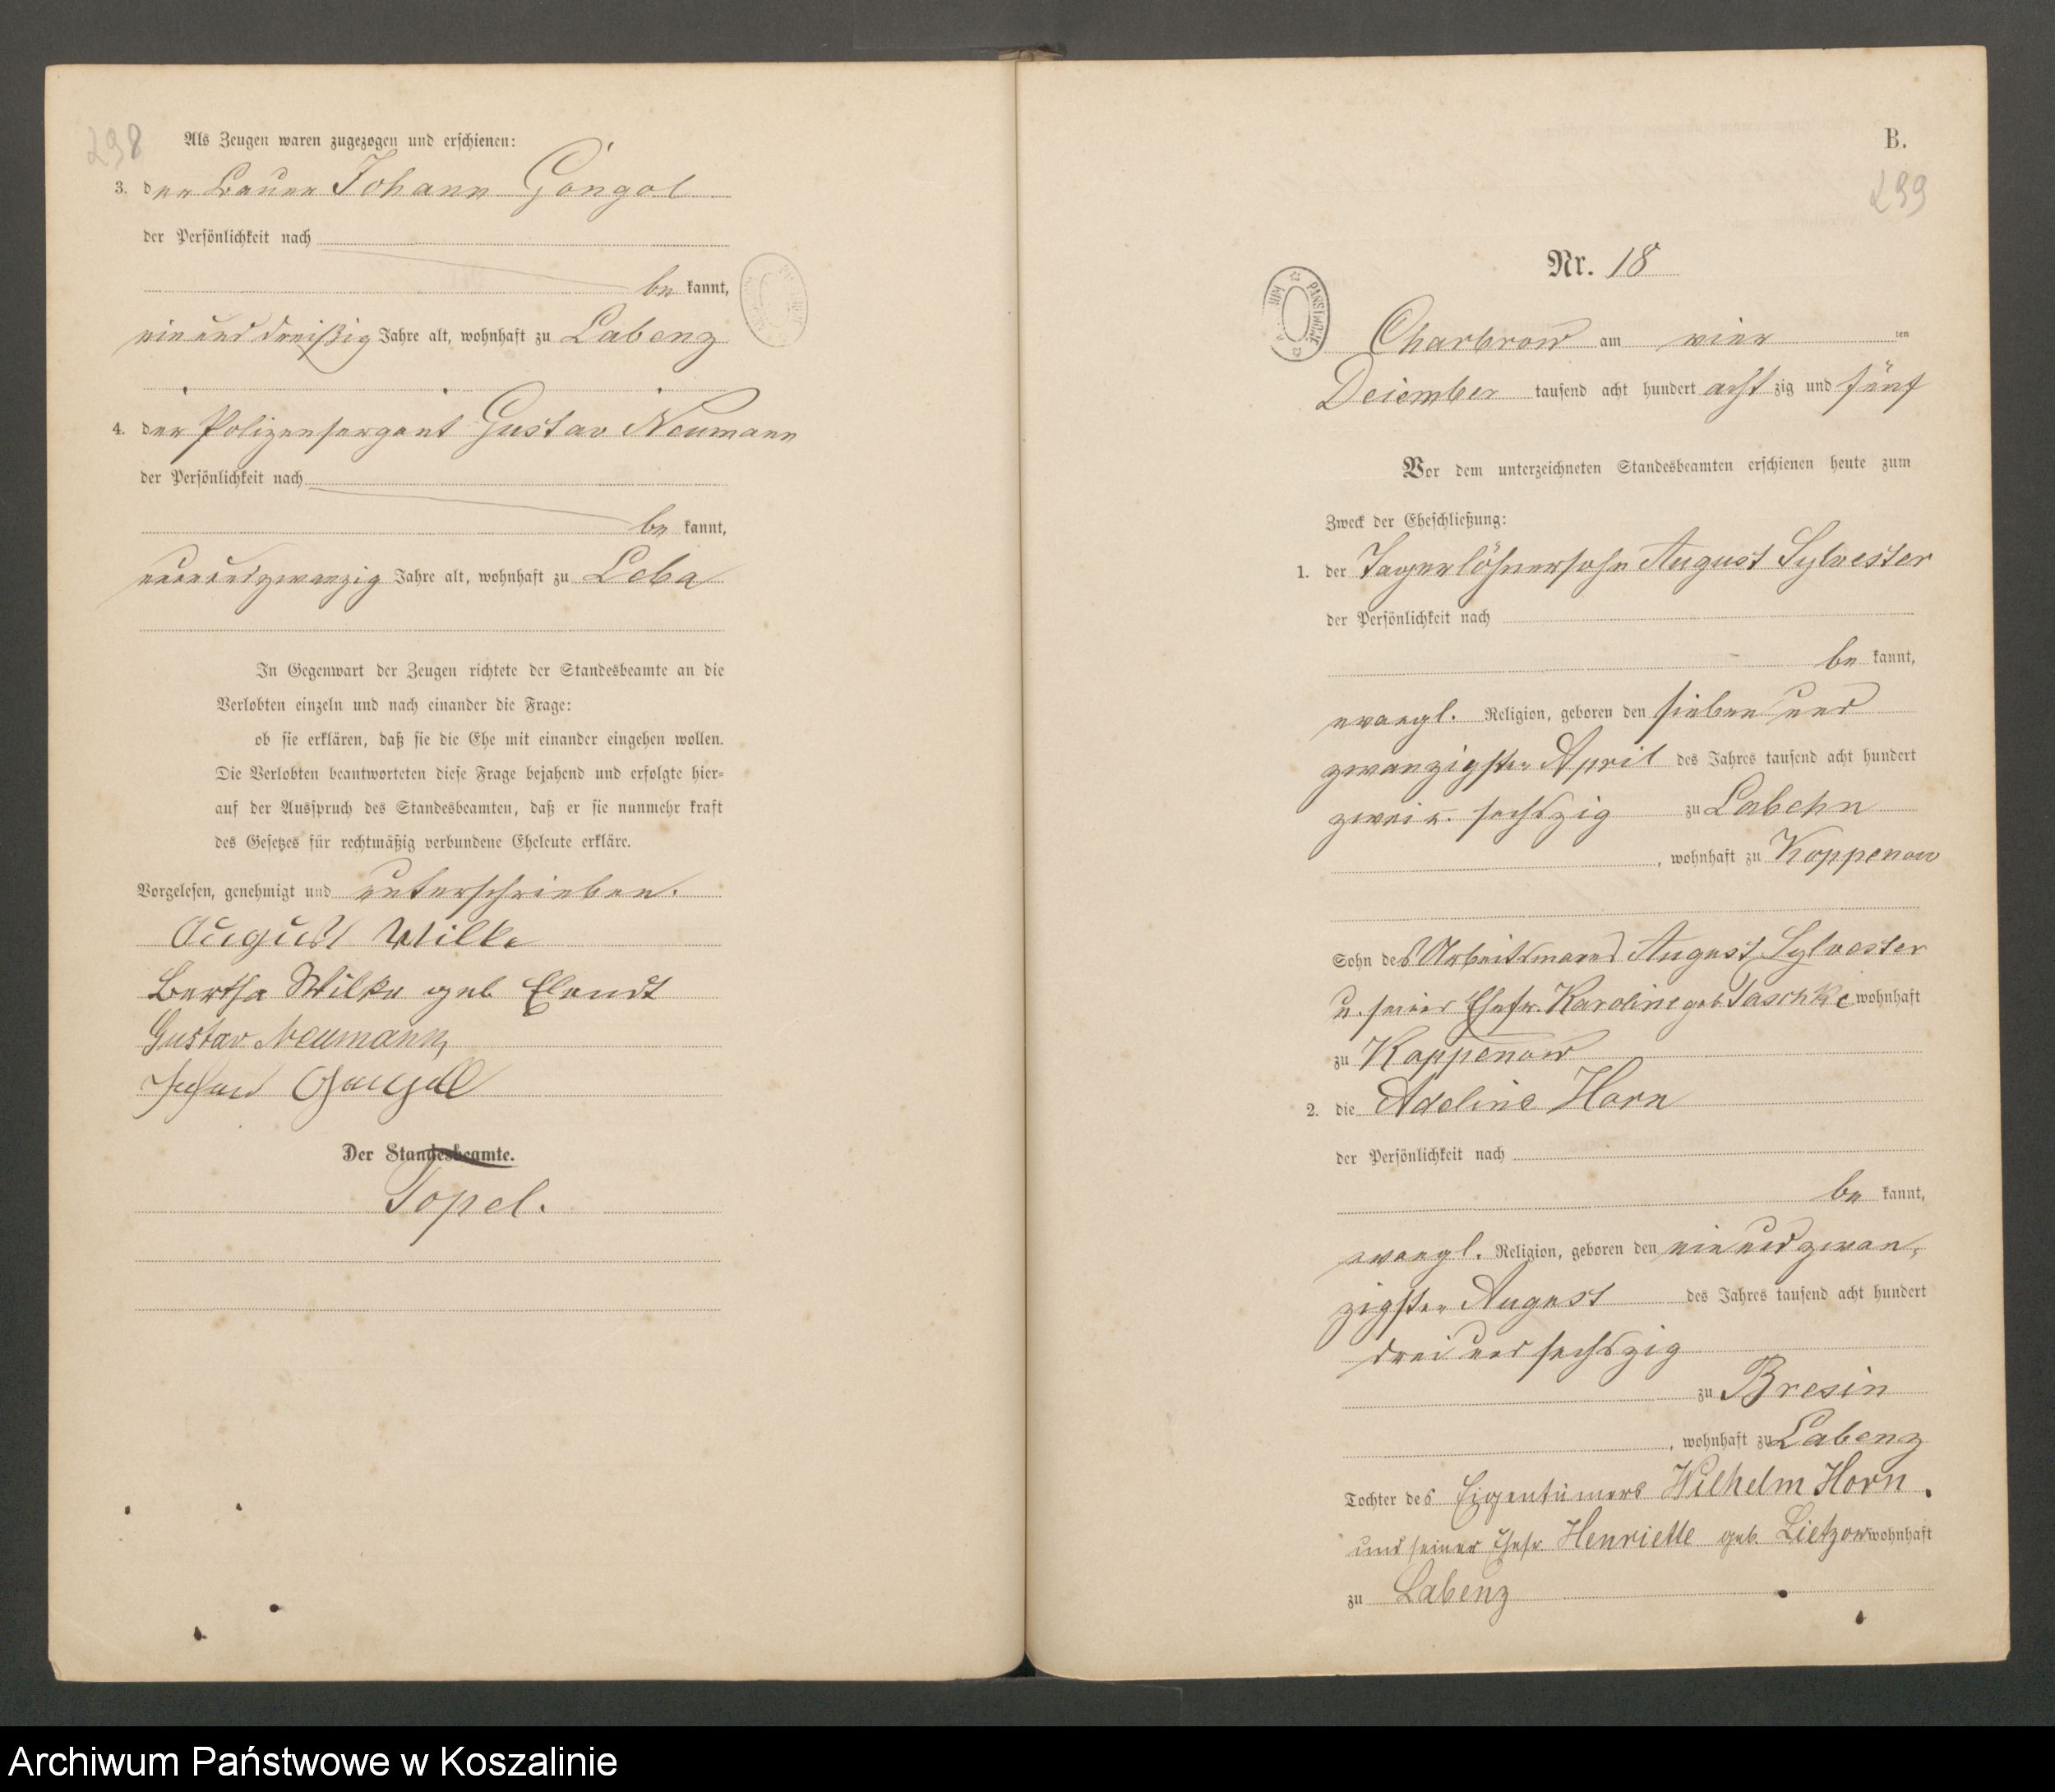 298
Als Zeugen waren zugezogen und erschienen:
3. der Bauer Johann Gongol
der Persönlichkeit nach
be kannt,
ein und dreißig Jahre alt, wohnhaft zu Labenz
4. der Polizeisergant Gustav Neumann
der Persönlichkeit nach
be kannt,
neunundzwanzig Jahre alt, wohnhaft zu Leba
In Gegenwart der Zeugen richtete der Standesbeamte an die
Verlobten einzeln und nach einander die Frage:
ob sie erklären, daß sie die Ehe mit einander eingehen wollen.
Die Verlobten beantworteten diese Frage bejahend und erfolgte hier=
auf der Ausspruch des Standesbeamten, daß er sie nunmehr kraft
des Gesetzes für rechtmäßig verbundene Eheleute erkläre.
Vorgelesen, genehmigt und unterschrieben.
August Wilke
Bertha Wilke geb Elendt
Gustav Neumann
Johann Gongoll
Der Standesbeamte.
Topel.
B.
299
Nr. 18
Charbrow am vier ten
Dezember tausend acht hundert acht zig und fünf
Vor dem unterzeichneten Standesbeamten erschienen heute zum
Zweck der Eheschließung:
1. der Tagerlöhnersohn August Sylvester
der Persönlichkeit nach
be kannt,
evangl. Religion, geboren den sieben und
zwanzigsten April des Jahres tausend acht hundert
zwei u. sechszig zu Labehn
, wohnhaft zu Koppenow
Sohn des Arbeitsmanns August Sylvester
u. seiner Ehefr. Karoline geb Taschke wohnhaft
zu Koppenow
2. die Adeline Horn
der Persönlichkeit nach
be kannt,
evangl. Religion, geboren den ein und zwan,
zigsten August des Jahres tausend acht hundert
drei und sechszig
zu Bresin
, wohnhaft zu Labenz
Tochter des Eigentümers Wilhelm Horn
und seiner Ehefr. Henriette geb. Lietzow wohnhaft
zu Labenz
Archiwum Państwowe w Koszalinie